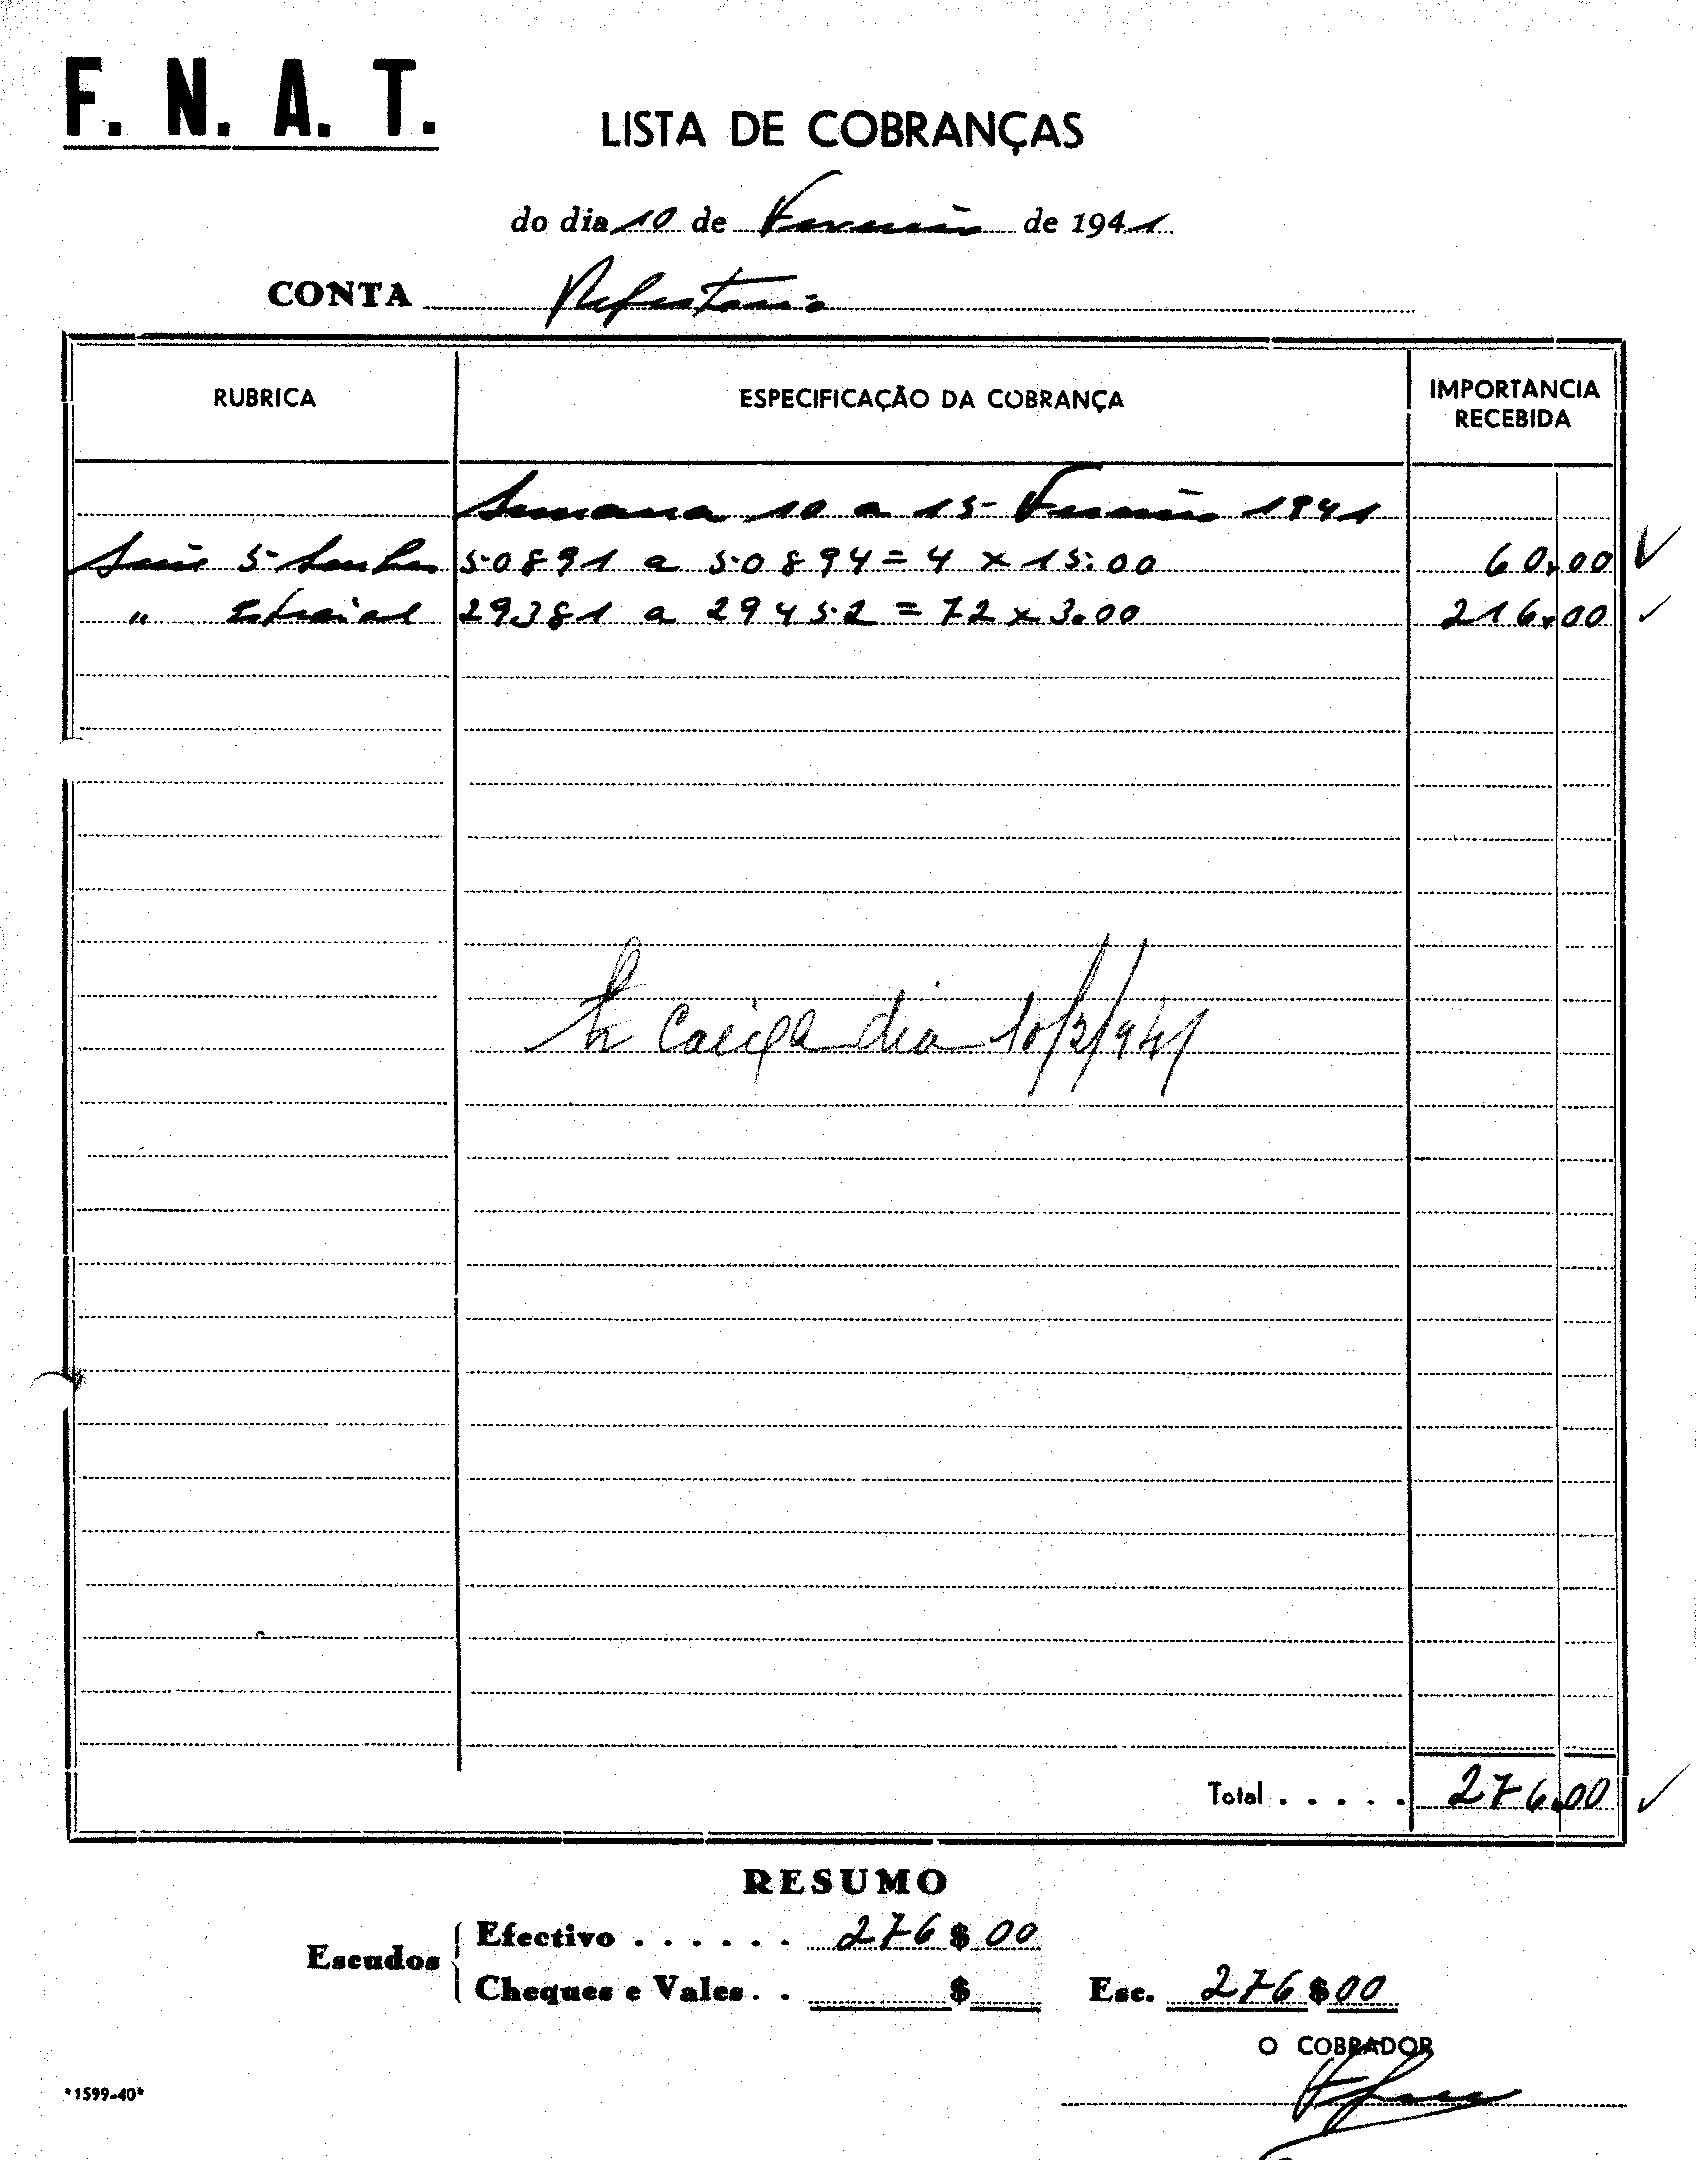 F. N. A. T.
LISTA DE COBRANÇAS
do dia 10 de Fevereiro de 1941
CONTA Refeitorio
RUBRICA ESPECIFICAÇÃO DA COBRANÇA IMPORTANCIA RECEBIDA
Semana 10 a 15 Fevereiro 1941
Series 5 Senhas 50891 a 50894 = 4 x 15.00 60.00
" 29381 a 29452 = 72 x 3.00 216.00
Caixa dia 10/2/941
Total . . . . . 276.00
RESUMO
Escudos
Efectivo . . . . . . 276 $ 00
Cheques e Vales . . $ Esc. 276 $ 00
O COBRADOR
*1599-40*